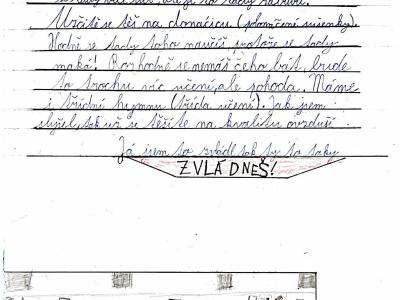 Určitě se těš na
Hodně se tady toho naučíš, protože se tady
maká! Rozhodně se nemáš čeho bát, bude
to trochu víc učení, ale pohoda. Máme
i třídní hymnu (třída učení). Jak jsem
slyšel, tak už se těšíte na kvalitu ovzduší.
Já jsem to zvládl tak ty to taky
ZVLÁDNEŠ!